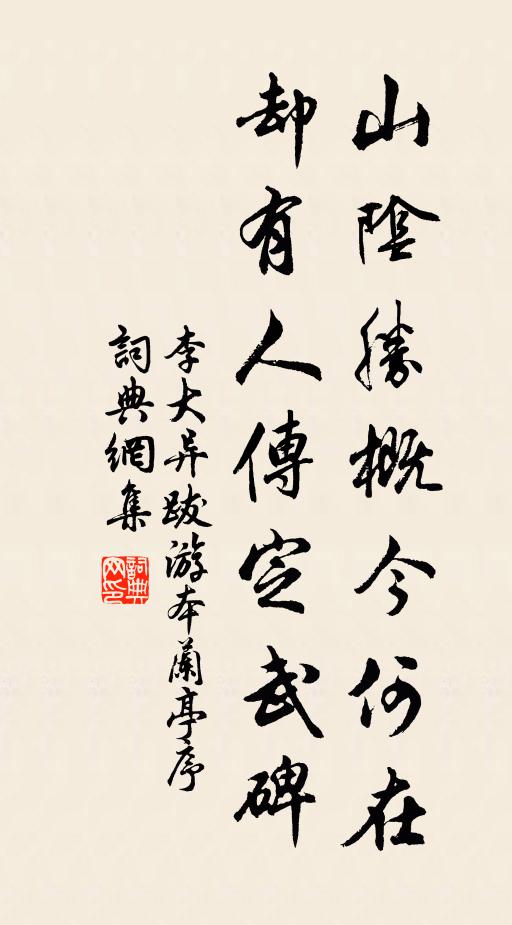 山陰勝概今何在
却有人傳定武碑
李大异跋游本蘭亭序
詞典網集
詞典网印